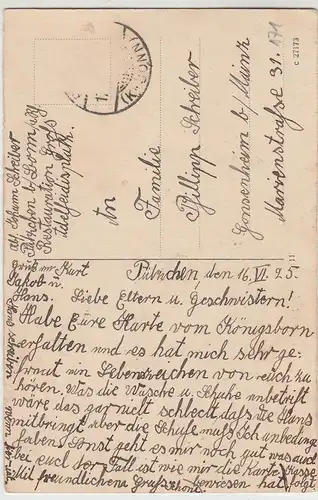 An
Familie
Phillipp Schreiber
Gonsenheim b/ Mainz
Marienstraße 31.
171
C 27173
Abs. Johann Schreiber
Pützchen b/ Bonn
Restauration
Gruß an Kurt
Jakob u.
Hans.
Pützchen, den 16. VI. 25.
Liebe Eltern u. Geschwistern!
Habe Eure Karte vom Königsborn
erhalten und es hat mich sehr ge-
freut ein Lebenszeichen von euch zu
hören. Was die Wäsche u. Schuhe anbetrifft
wäre das gar nicht schlecht daß die Hans
mitbringt aber die Schuhe muß ich unbedingt
haben. Sonst geht es mir noch gut was auch
bei euch der Fall ist wie mir die Karte
Mit freundlichem Gruß bewiesen hat.
folgt